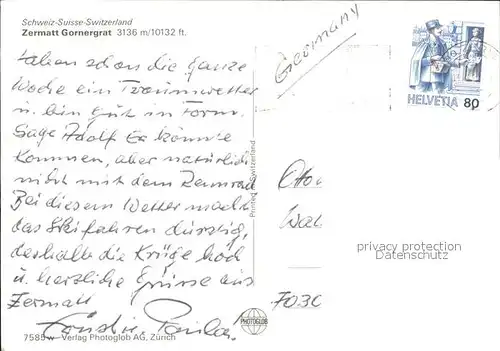 Schweiz-Suisse-Switzerland
Zermatt Gornergrat 3136 m/10132 ft.
Haben schon die ganze
Woche ein Traumwetter
u. bin gut in Form.
Sage Adolf Er könnte
kommen, aber natürlich
nicht mit dem Rennrad
Bei diesem Wetter macht
das Skifahren durstig,
deshalb die Krüge hoch
u. herzliche Grüsse aus
Zermatt
7585 w Verlag Photoglob AG, Zürich
Printed in Switzerland
PHOTOGLOB
Germany
HELVETIA 80
privacy protection
Datenschutz